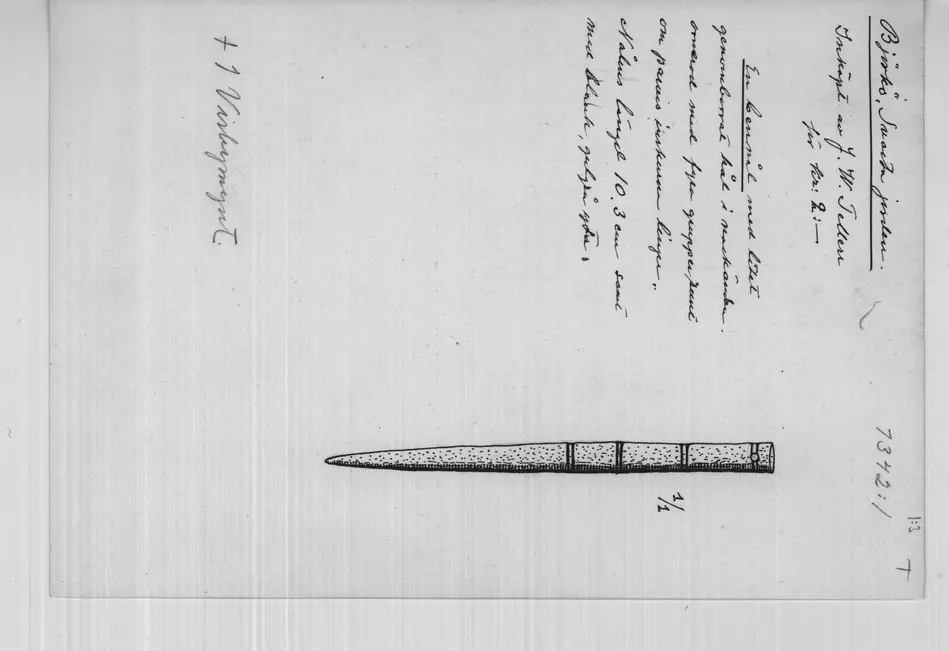 Björkö, Svarta jorden.
Inköpt av J. W. Tellen
för kr: 2:—
7342:1
1:3
+
En bennål med litet
genomborrat hål i nackändan.
ornerad med fyra grupper runt
om parvis inskurna linjer.
Nålens längd 10.3 cm samt
med blank, gulgrå yta.
1/1
+ 1 Visbymynt.